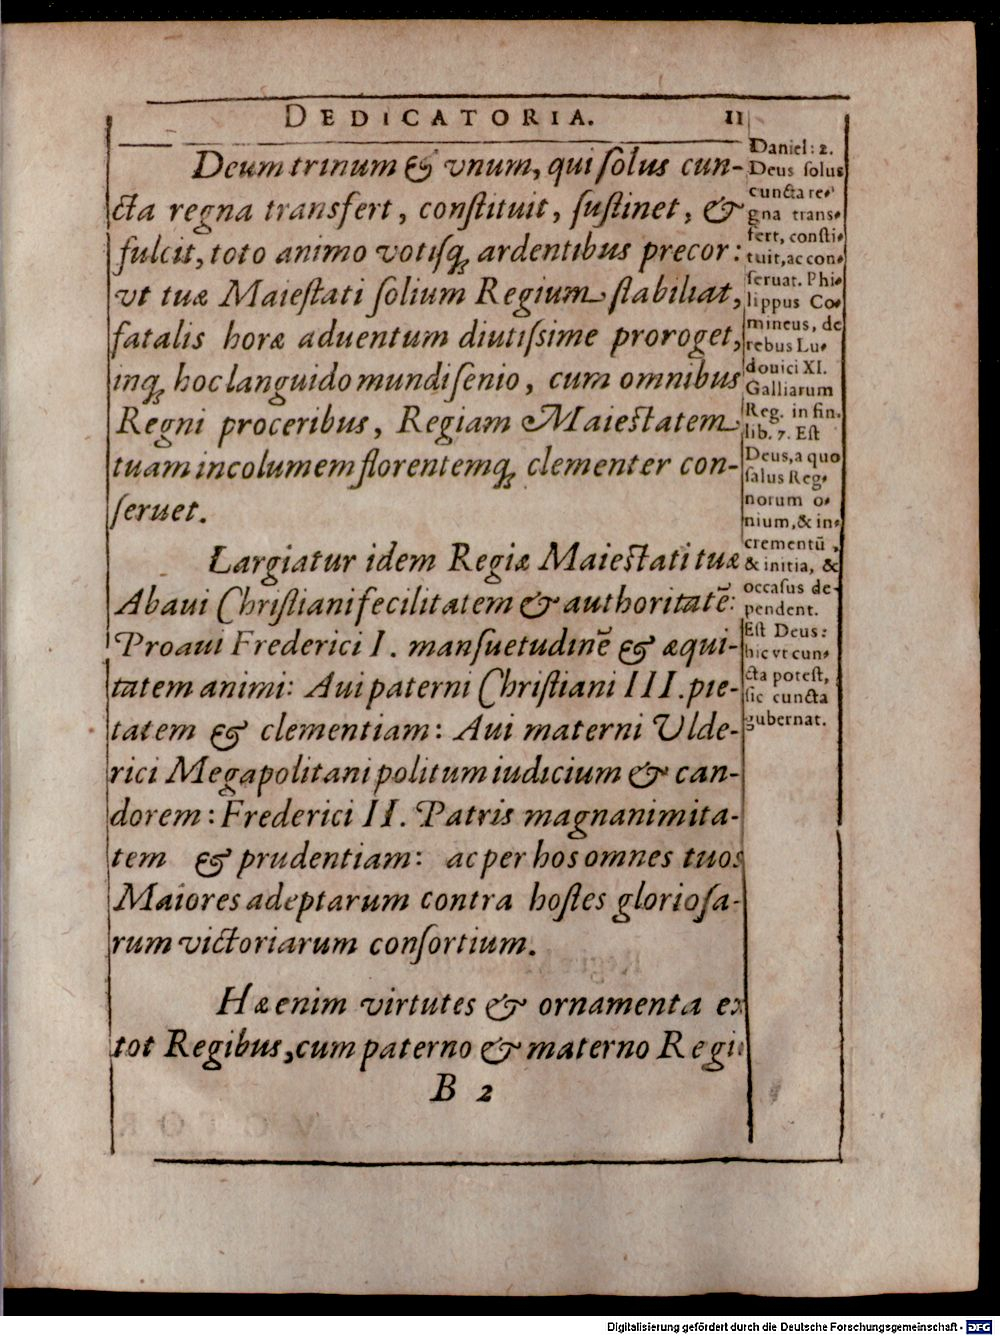 DEDICATORIA. 11
Deum trinum & vnum, qui ſolus cun-
cta regna transfert, conſtituit, ſuſtinet, &
fulcit, toto animo votiſq́ꝫ ardentibus precor:
vt tuæ Maieſtati ſolium Regium ſtabiliat,
fatalis horæ aduentum diutiſsime proroget,
inq́ꝫ hoc languido mundi ſenio, cum omnibus
Regni proceribus, Regiam Maieſtatem
tuam incolumem florentemq́ꝫ clementer con-
ſeruet.
Largiatur idem Regiæ Maieſtati tuæ
Abaui Chriſtiani fecilitatem & authoritatẽ:
Proaui Frederici I. manſuetudinẽ & æqui-
tatem animi: Aui paterni Chriſtiani III. pie-
tatem & clementiam: Aui materni Vlde-
rici Megapolitani politum iudicium & can-
dorem: Frederici II. Patris magnanimita-
tem & prudentiam: ac per hos omnes tuos
Maiores adeptarum contra hoſtes glorioſa-
rum victoriarum conſortium.
Hæ enim virtutes & ornamenta ex
tot Regibus, cum paterno & materno Regii
B 2
Daniel: 2.
Deus ſolus
cuncta re-
gna trans-
fert, conſti-
tuit, ac con-
ſeruat. Phi-
lippus Co-
mineus, de
rebus Lu-
douici XI.
Galliarum
Reg. in fin.
lib. 7. Eſt
Deus, a quo
ſalus Reg-
norum o-
nium, & in-
crementũ,
& initia, &
occaſus de-
pendent.
Eſt Deus:
hic vt cun-
cta poteſt,
ſic cuncta
gubernat.
Digitalisierung gefördert durch die Deutsche Forschungsgemeinschaft - DFG